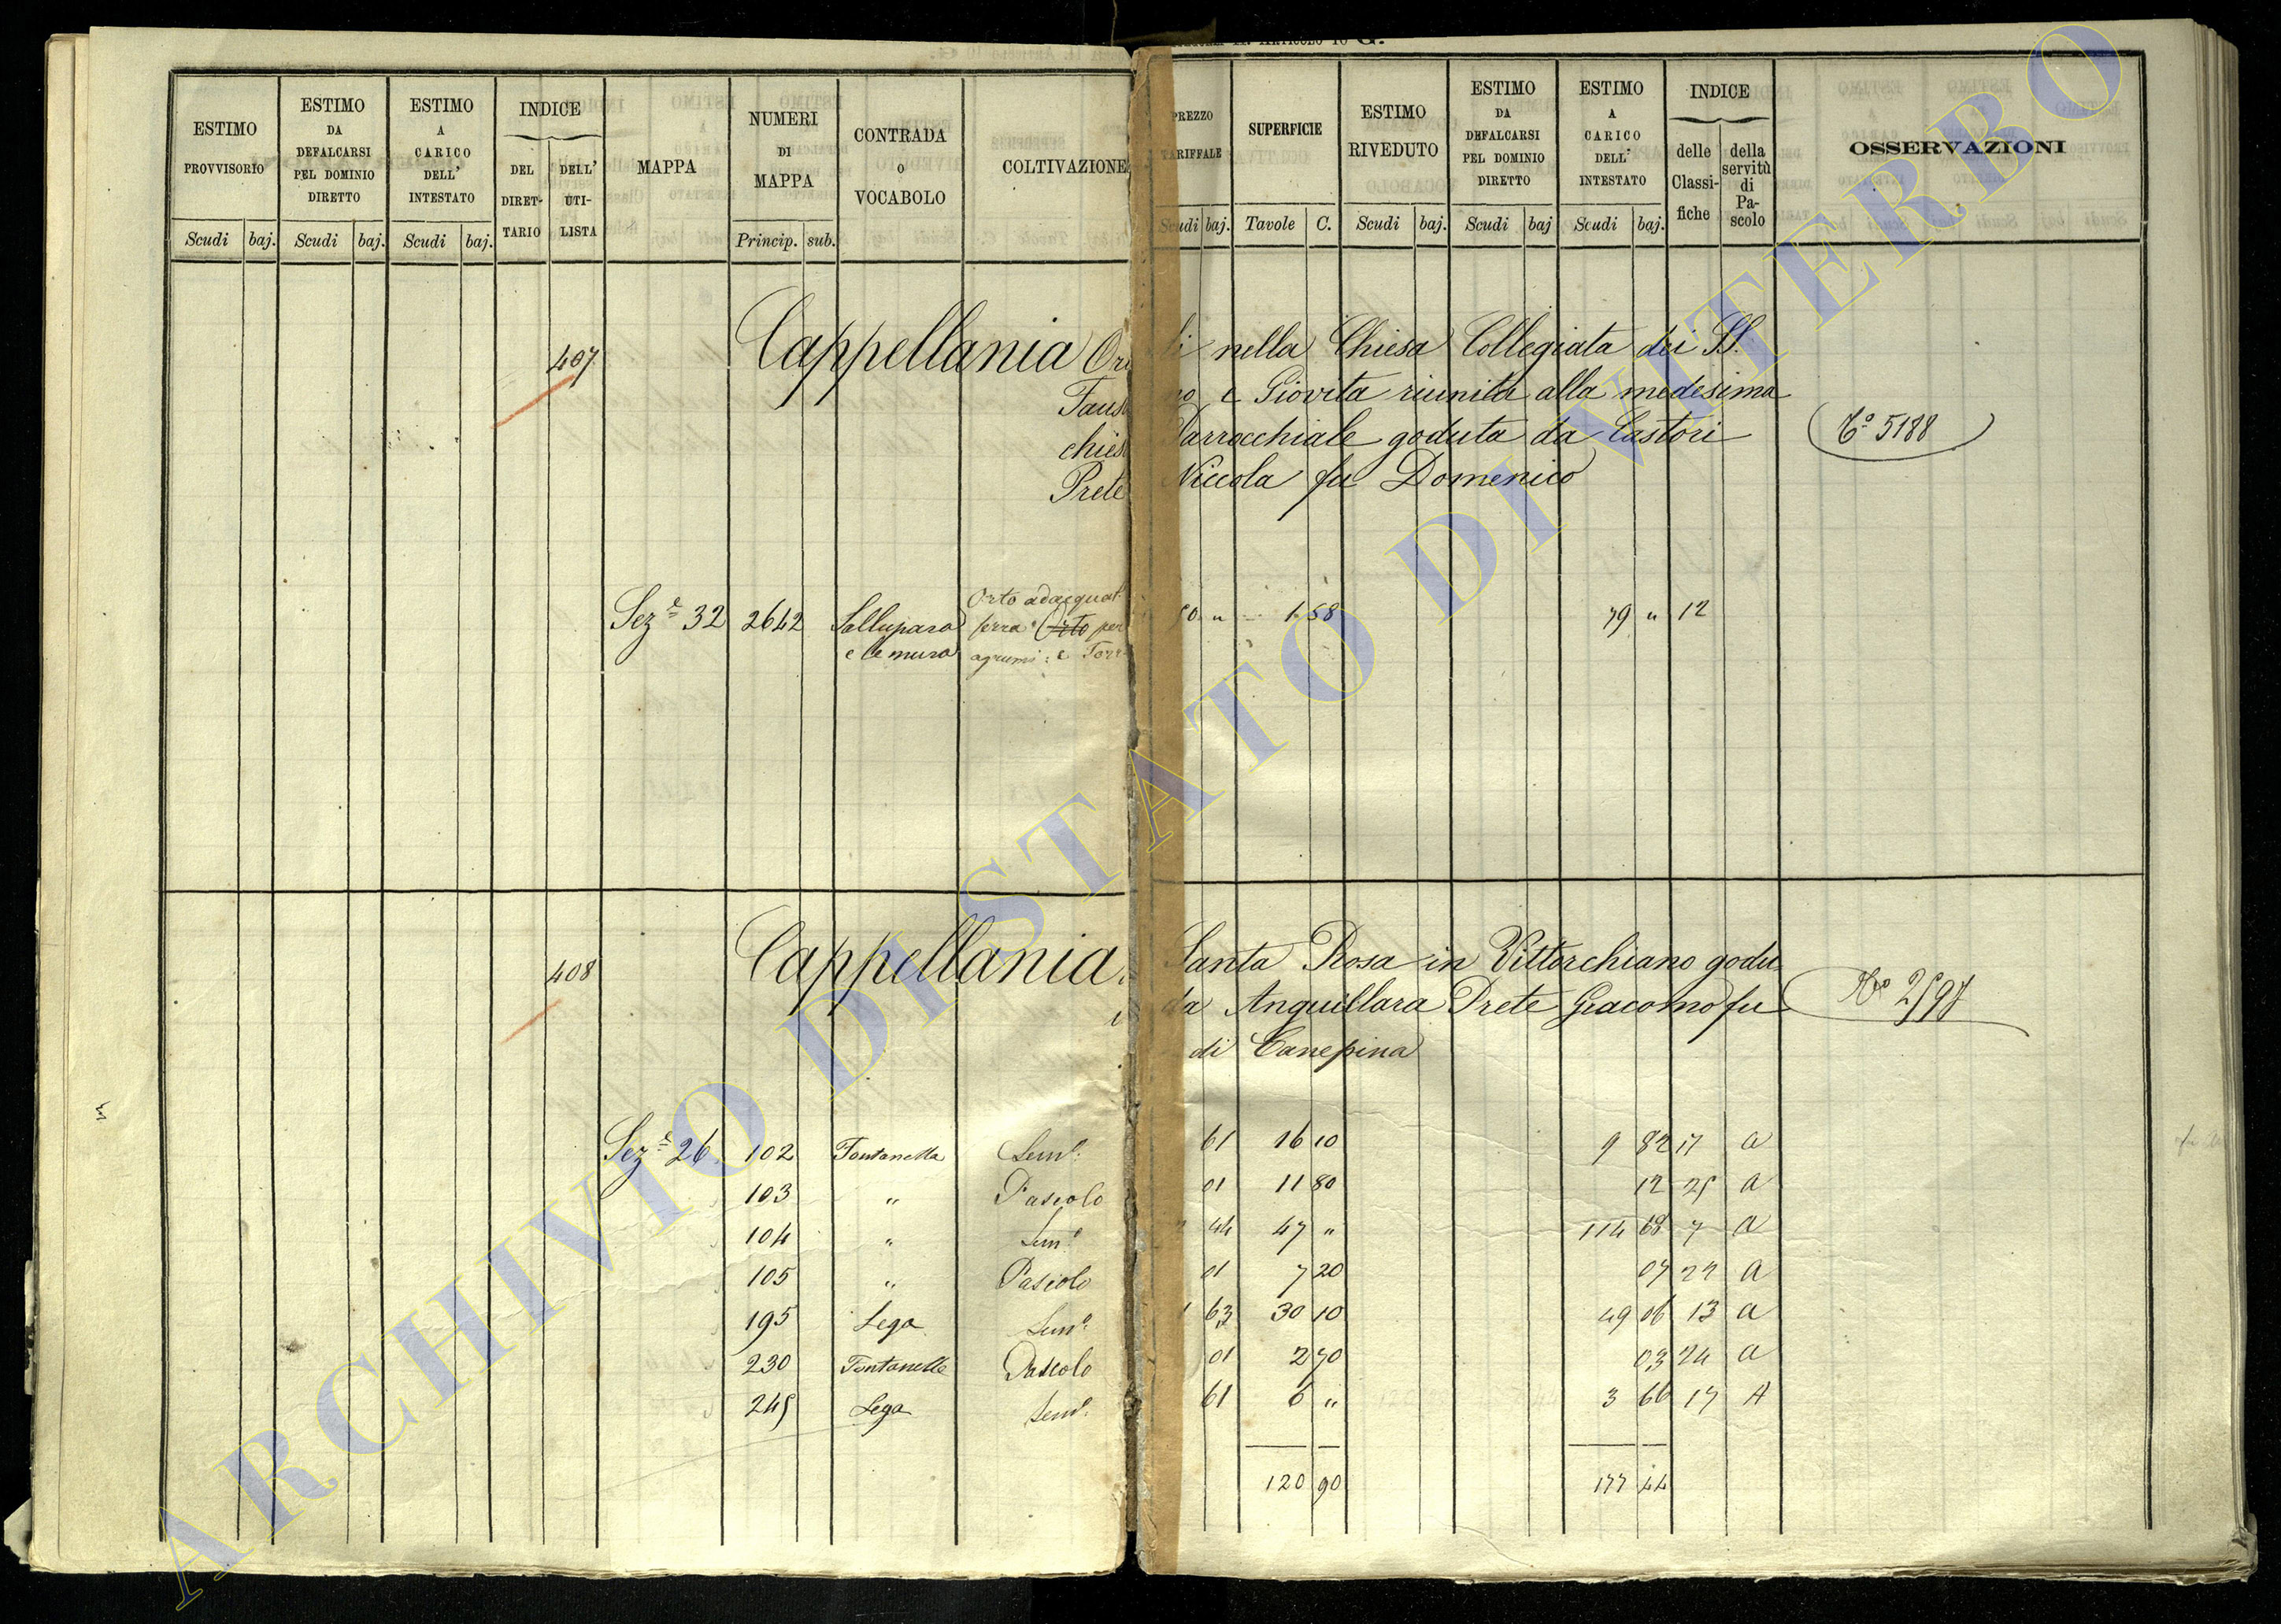 ESTIMO PROVVISORIO
ESTIMO DA DEFALCARSI PEL DOMINIO DIRETTO
ESTIMO A CARICO DELL' INTESTATO
INDICE
DEL DIRETTARIO
DELL' UTILISTA
MAPPA
NUMERI DI MAPPA
CONTRADA o VOCABOLO
COLTIVAZIONE
Scudi baj. Scudi baj. Scudi baj. Princip. sub.
PREZZO TARIFFALE
SUPERFICIE
ESTIMO RIVEDUTO
ESTIMO DA DEFALCARSI PEL DOMINIO DIRETTO
ESTIMO A CARICO DELL' INTESTATO
INDICE
delle Classifiche
della servitù di Pascolo
OSSERVAZIONI
Scudi baj. Tavole C. Scudi baj. Scudi baj Scudi baj.
407 Cappellania nella Chiesa Collegiata dei SS.
e Giovita riunita alla medesima
Parrocchiale goduta da Castori
Prete Niccola fu Domenico
5188
Orto adacquat
Sez.e 32 2642 Sallupara terra Orto per 1 58 79 " 12
e le mura agrumi: e Torr
408 Cappellania Santa Rosa in Vittorchiano godu
da Anguillara Prete Giacomo fu
di Canepina
No 2597
Sez.e 26 102 Fontanella Semo: 61 16 10 9 82 17 a
103 " Pascolo 01 11 80 12 25 a
104 " Semo 44 47 " 114 68 7 a
105 " Pascolo 01 7 20 07 24 a
195 Lega Semo: 63 30 10 49 06 13 a
230 Fontanelle Pascolo 01 2 70 03 24 a
245 Lega Semo: 61 6 " 3 66 17 A
120 90 177 44
ARCHIVIO DI STATO DI VITERBO